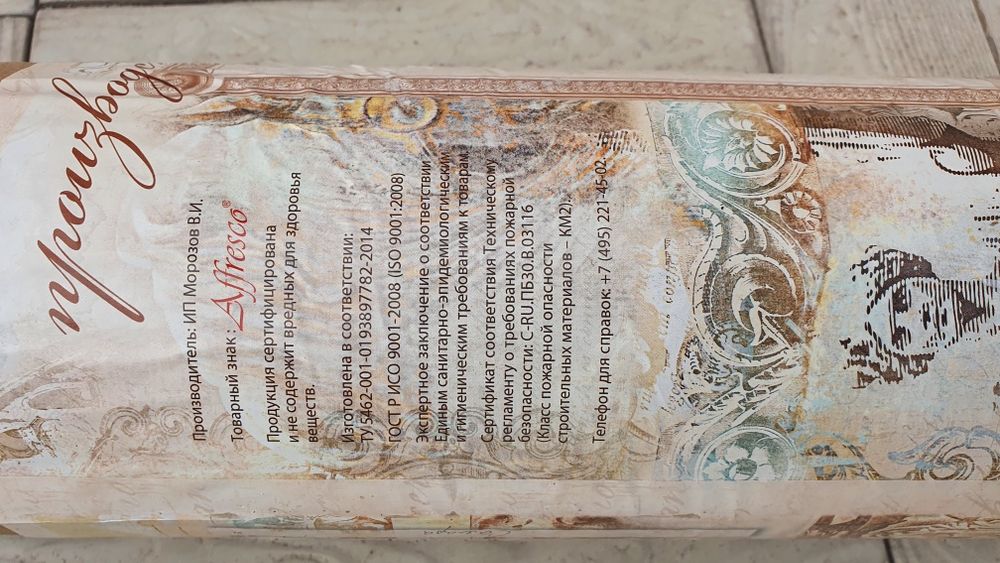 Производитель: ИП Морозов В.И.
Товарный знак: Affresco®
Продукция сертифицирована
и не содержит вредных для здоровья
веществ.
Изготовлена в соответствии:
ТУ 5462-001-0193897782-2014
ГОСТ Р ИСО 9001-2008 (ISO 9001:2008)
Экспертное заключение о соответствии
Единым санитарно-эпидемиологическим
и гигиеническим требованиям к товарам.
Сертификат соответствия Техническому
регламенту о требованиях пожарной
безопасности: C-RU.ПБ30.В.03116
(Класс пожарной опасности
строительных материалов – КМ2).
Телефон для справок: +7 (495) 221-45-02